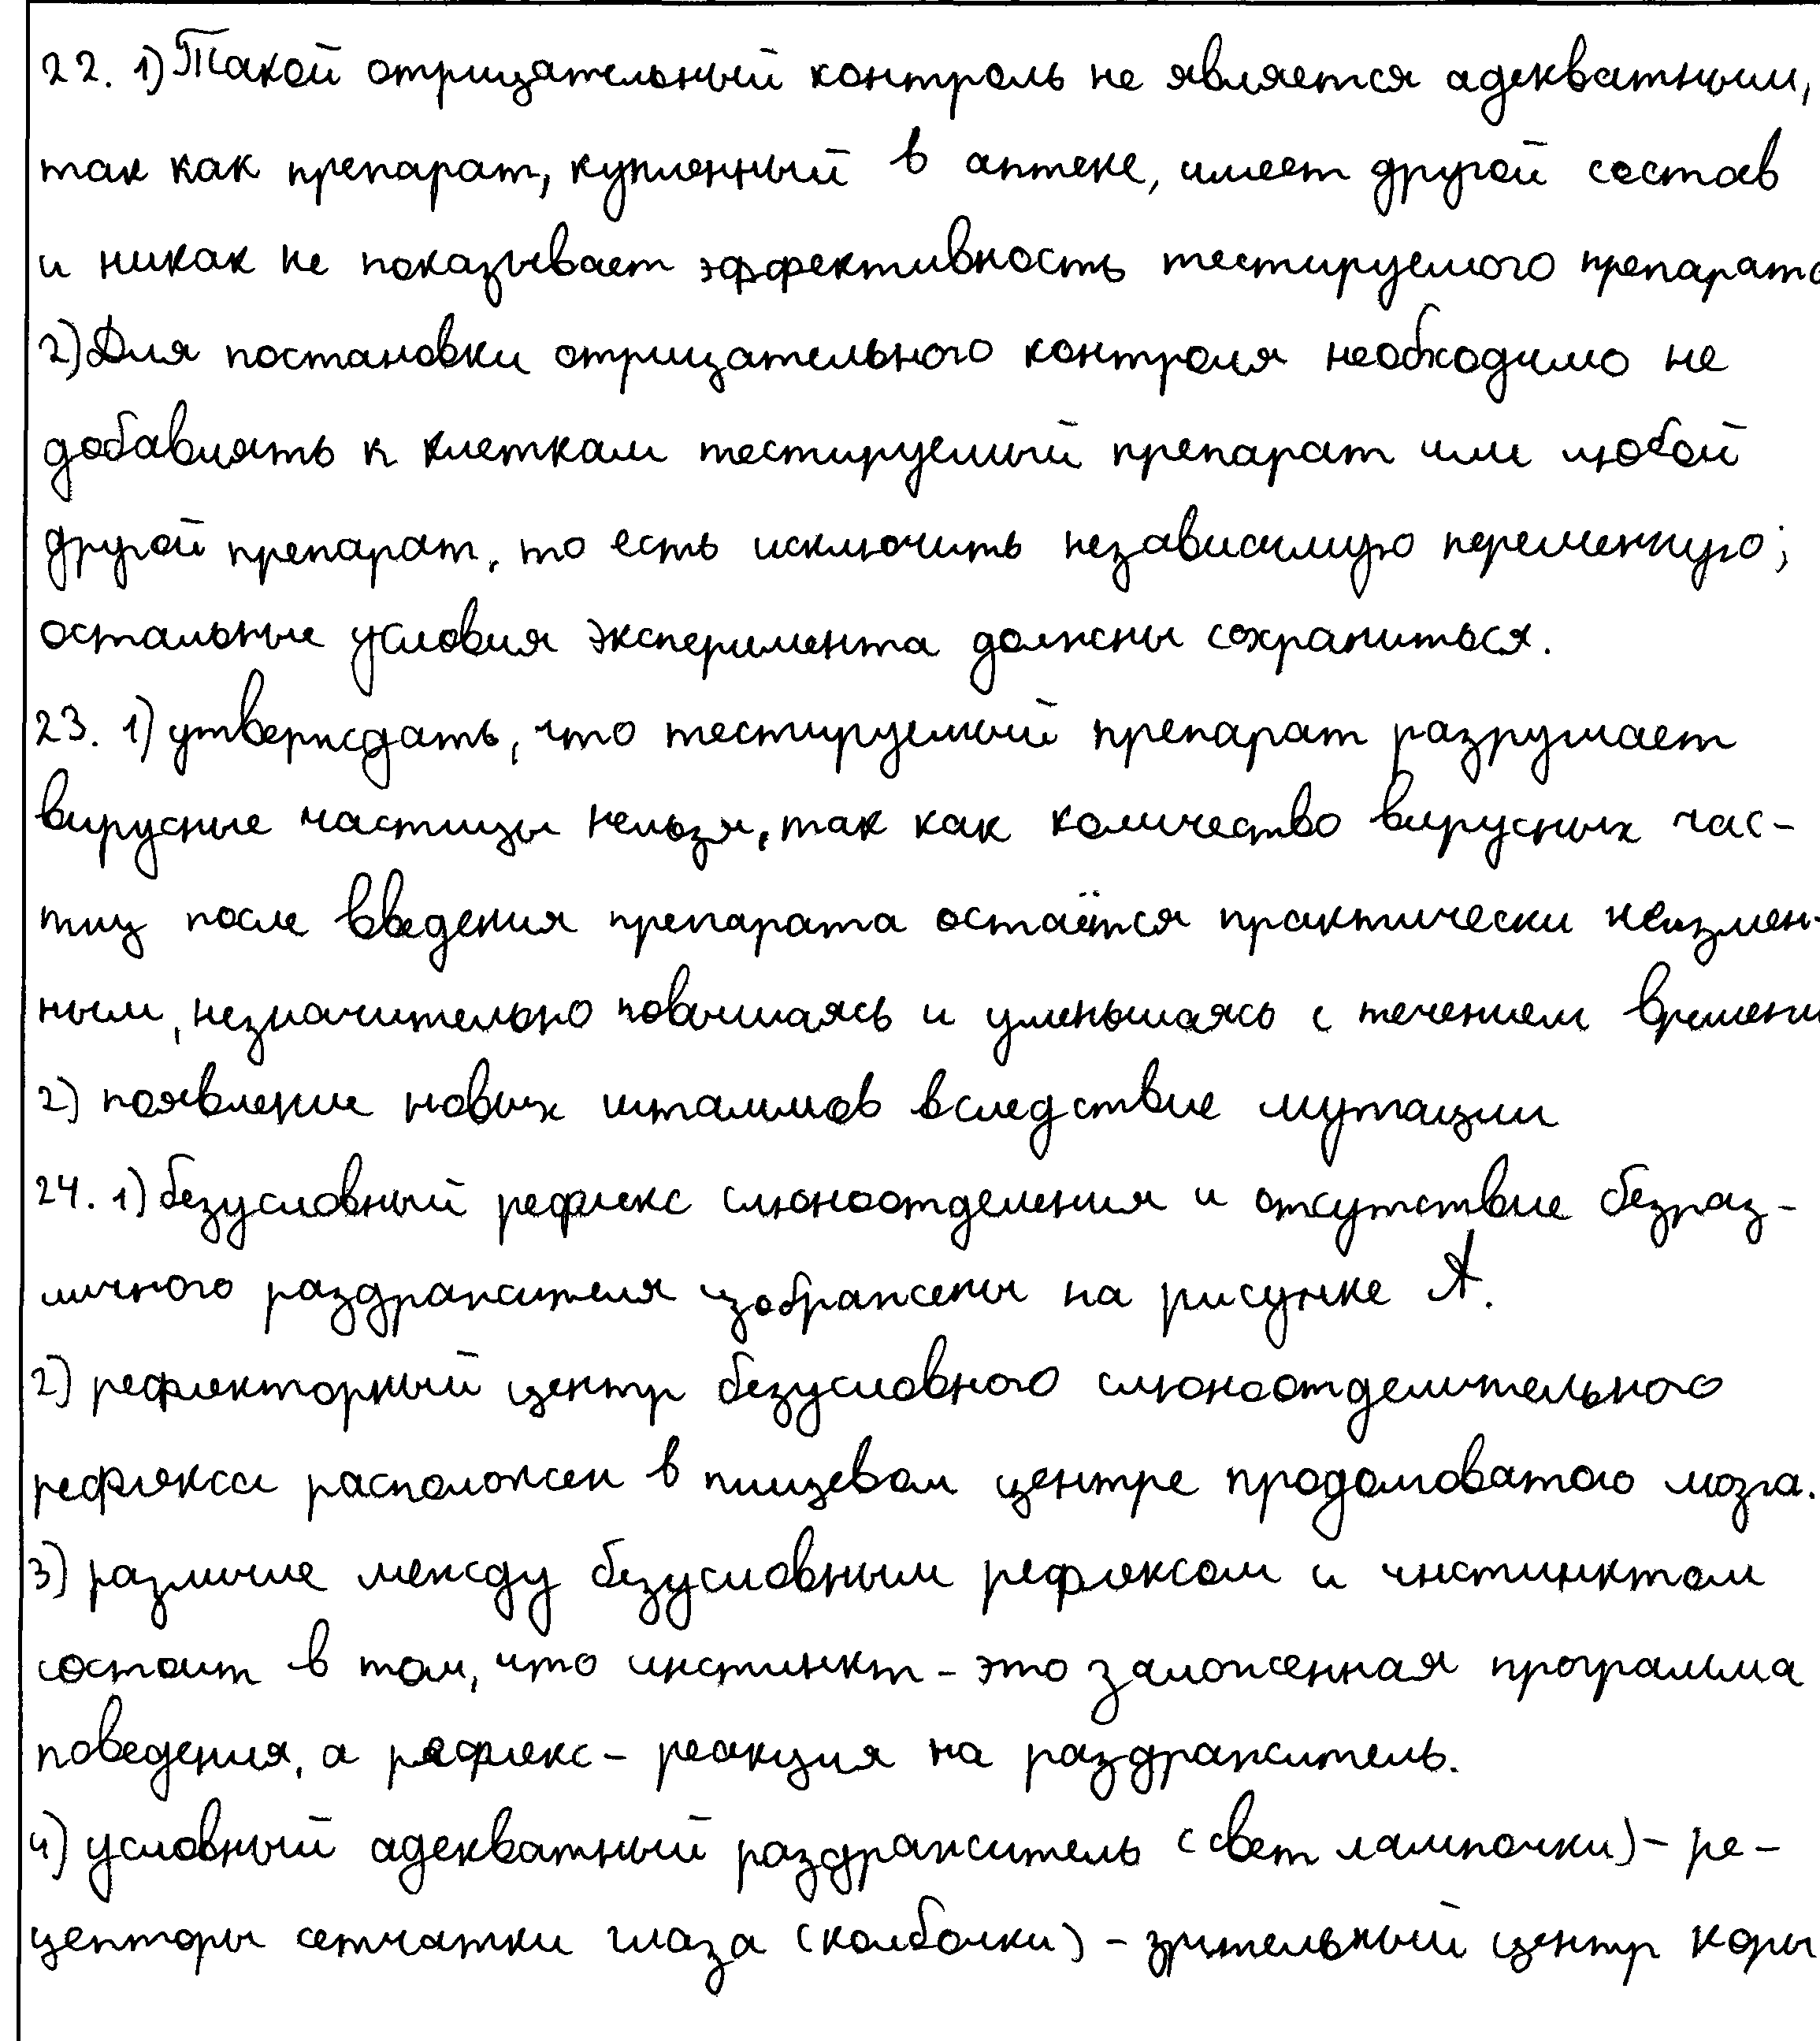 22. 1) Такой отрицательный контроль не является адекватным,
так как препарат, купленный в аптеке, имеет другой состав
и никак не показывает эффективность тестируемого препарата
2) Для постановки отрицательного контроля необходимо не
добавлять к клеткам тестируемый препарат или любой
другой препарат, то есть исключить независимую переменную;
остальные условия эксперимента должны сохраниться.
23. 1) утверждать, что тестируемый препарат разрушает
вирусные частицы нельзя, так как количество вирусных час-
тиц после введения препарата остаётся практически неизмен-
ным, незначительно повышаясь и уменьшаясь с течением времени
2) появление новых штаммов вследствие мутации
24. 1) безусловный рефлекс слюноотделения и отсутствие безраз-
личного раздражителя изображены на рисунке А.
2) рефлекторный центр безусловного слюноотделительного
рефлекса расположен в пищевом центре продолговатого мозга.
3) различие между безусловным рефлексом и инстинктом
состоит в том, что инстинкт - это заложенная программа
поведения, а рефлекс - реакция на раздражитель.
4) условный адекватный раздражитель (свет лампочки) - ре-
цепторы сетчатки глаза (колбочки) - зрительный центр коры